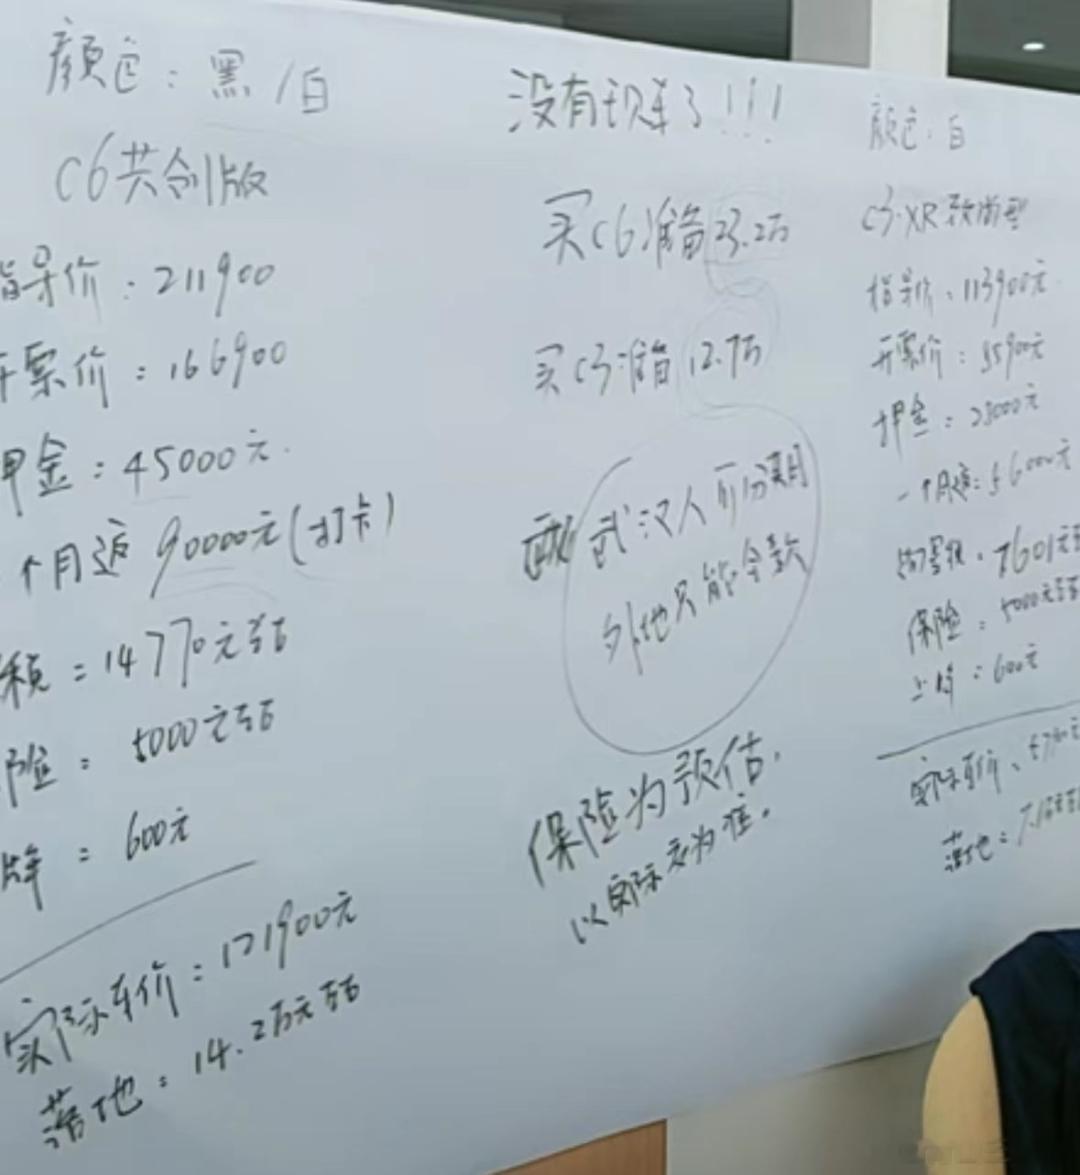 颜色：黑/白
C6共创版
指导价：211900
开票价：166900
押金：45000元.
个月返90000元(打卡)
税：14770元左右
险：5000元左右
牌：600元
实际车价：121900元
落地：14.2万元左右
没有现车了!!!
买C6准备23.2万
买C3准备12.7万
武汉人可分期
外地只能全款
保险为预估.
以实际交为准.
颜色：白
C3-XR致尚型
指导价：113900元
开票价：85900元
押金：28000元
一个月返：56000元
购置税：7601元
保险：5000元左右
上牌：600元
实际车价：
落地：